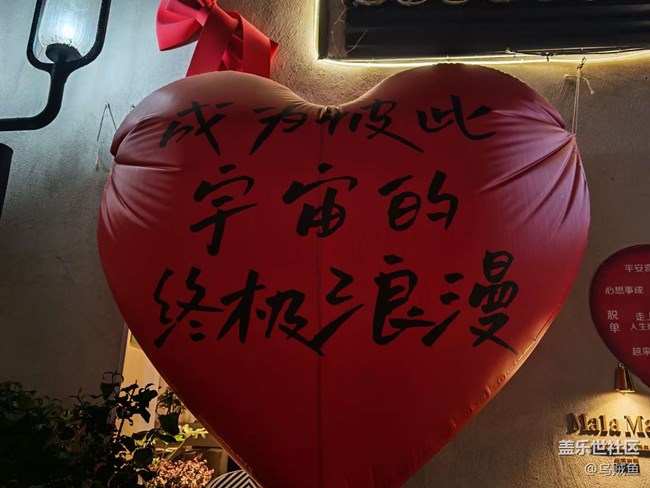 成为彼此
宇宙的
终极浪漫
平安喜
心想事成
脱单
走上
人生
越来
Mala Ma
盖乐世社区
@乌贼鱼